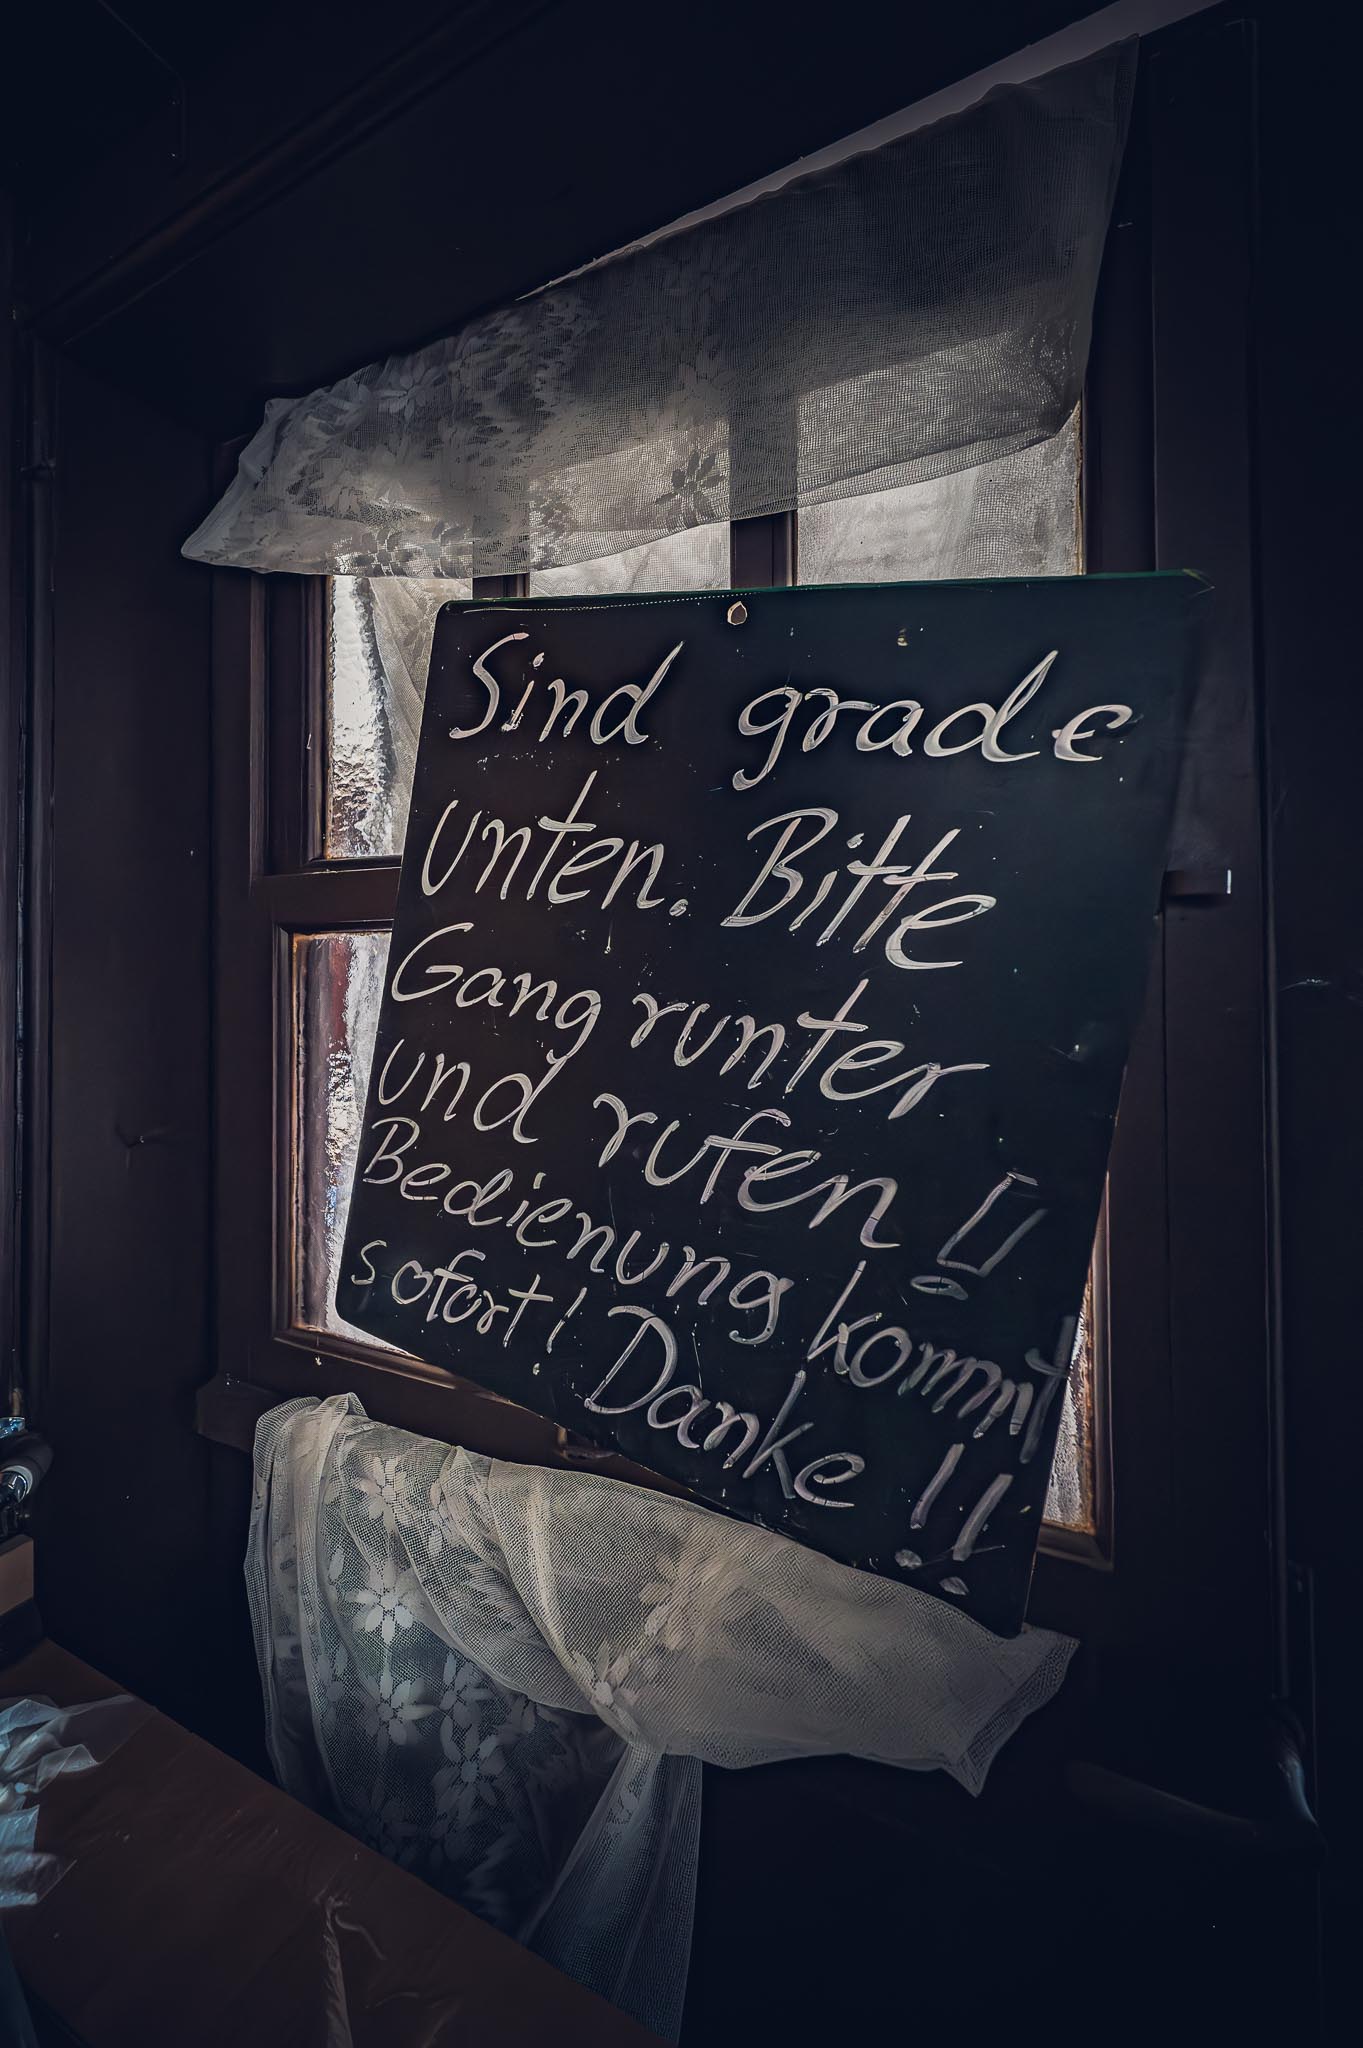 Sind grade
unten. Bitte
Gang runter
und rufen!
Bedienung kommt
sofort! Danke!!